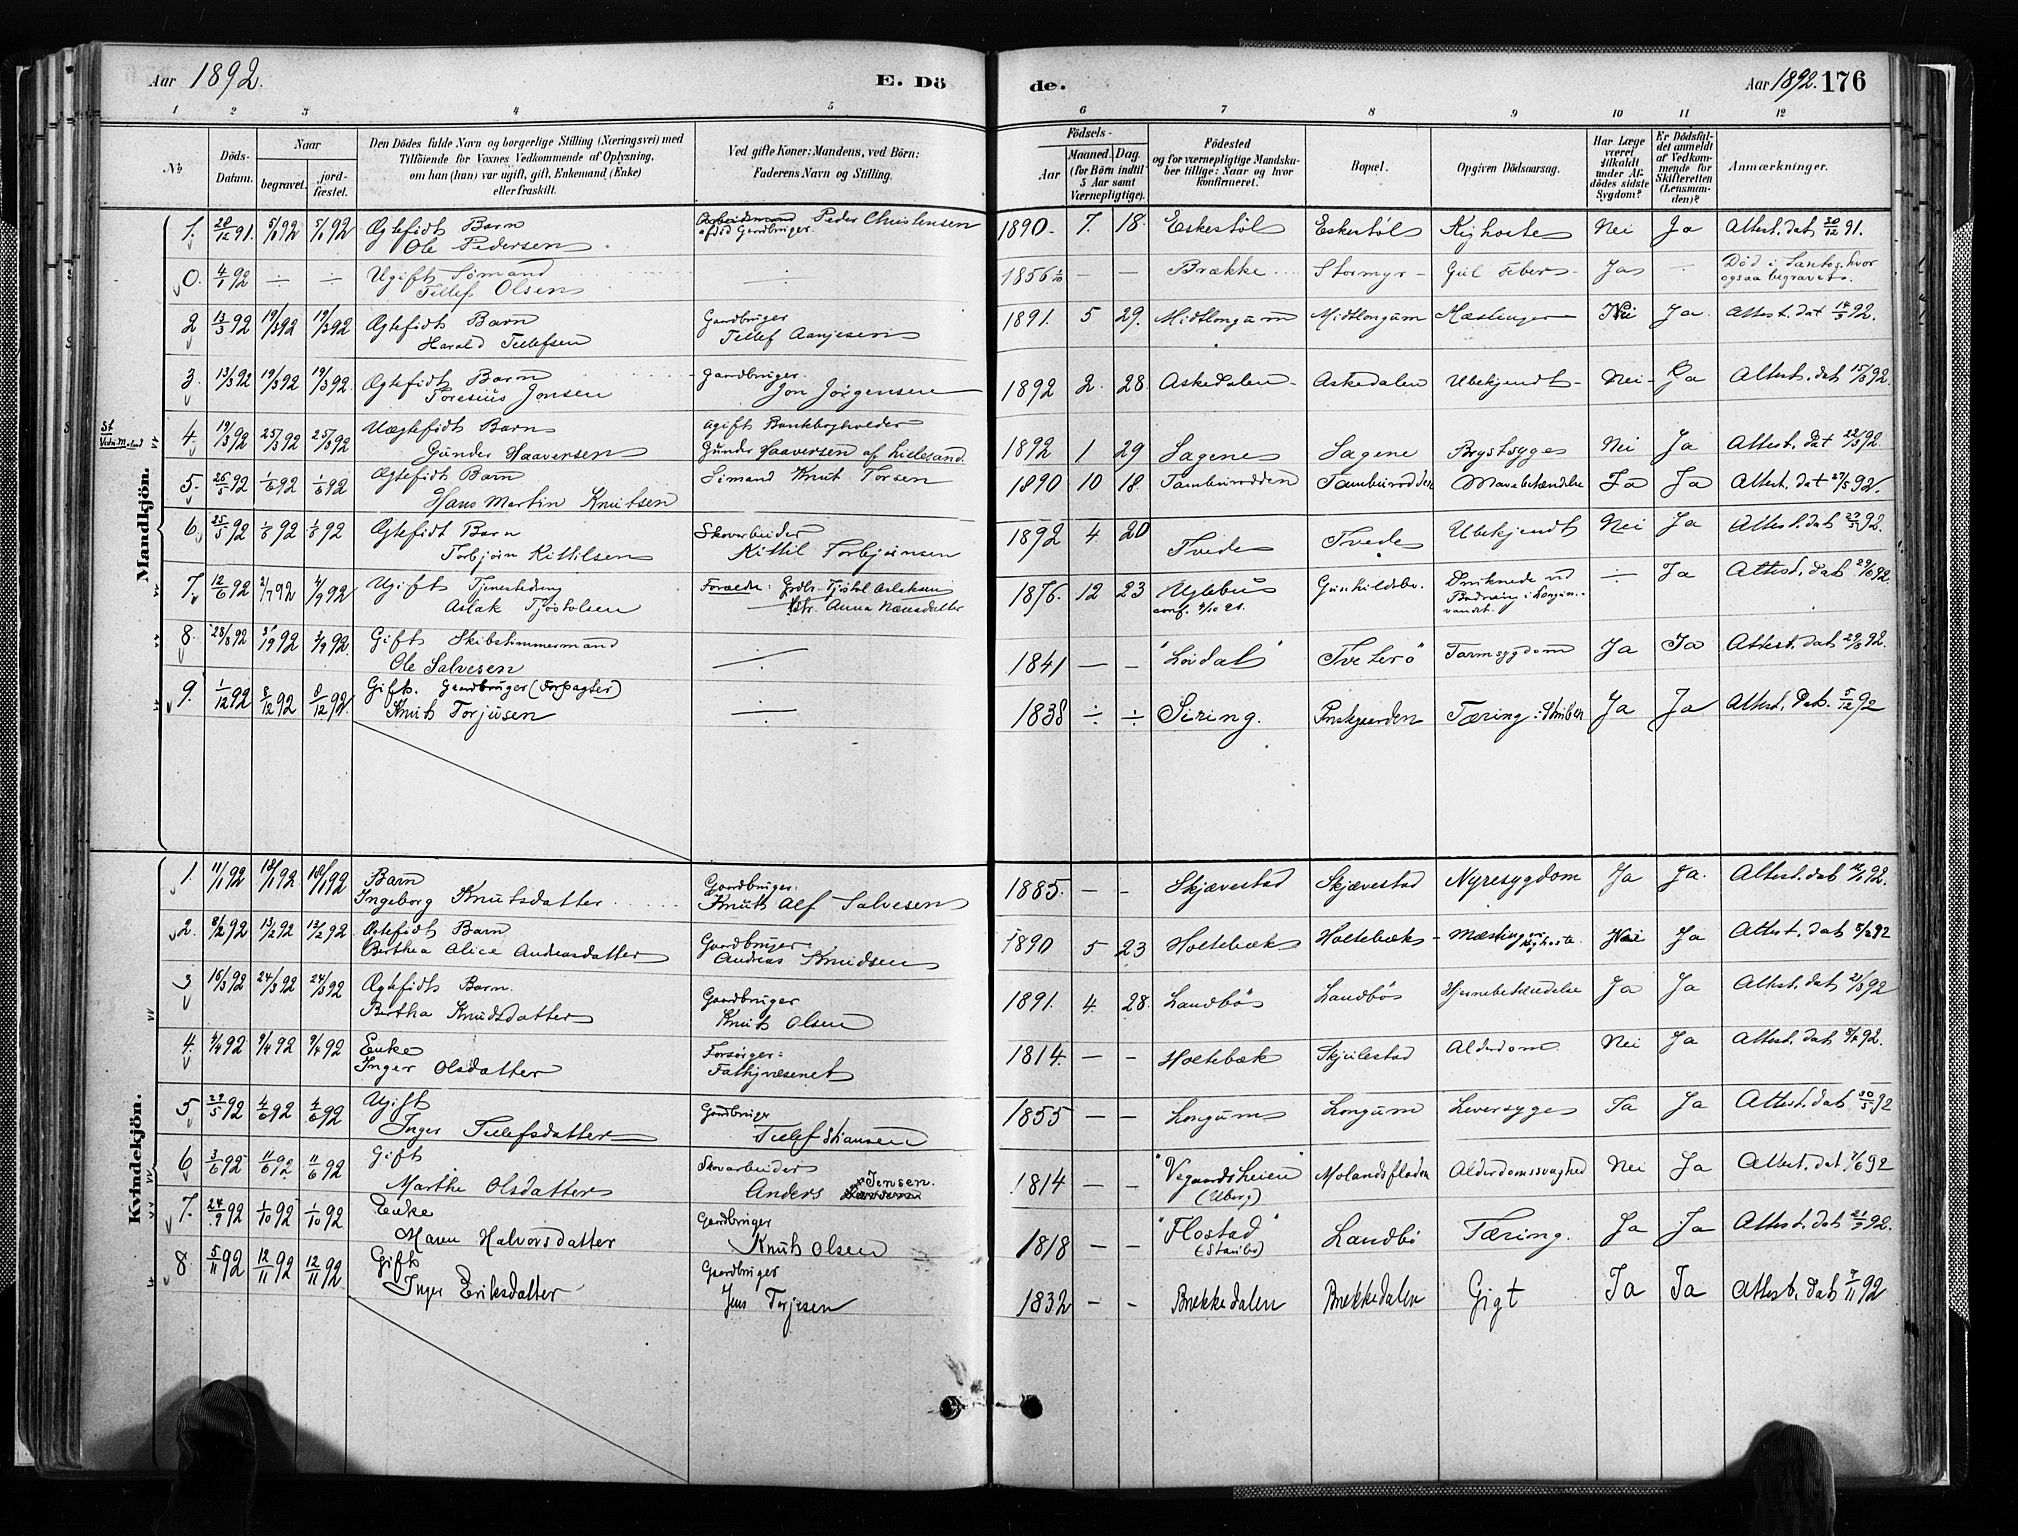 Aar 1892. E. Dö
de. Aar 1892. 176
1 2 3 4 5
6 7 8 9 10 11 12
No. Döds-Datum. Naar begravet. jord-fæstet. Den Dödes fulde Navn og borgerlige Stilling (Næringsvei) med Tilföiende for Voxnes Vedkommende af Oplysning, om han (hun) var ugift, gift, Enkemand (Enke) eller fraskilt. Ved gifte Koner: Mandens, ved Börn: Faderens Navn og Stilling.
Födsels- Aar Maaned. Dag. (for Börn indtil 5 Aar samt Værnepligtige). Födested og for værnepligtige Mandskaber tillige: Naar og hvor konfirmeret. Bopæl. Opgiven Dödsaarsag. Har Læge været tilkaldt under Afdödes sidste Sygdom? Er Dödsfaldet anmeldt af Vedkommende for Skifteretten (Lensmanden)? Anmærkninger.
Mandkjön.
1. 28/12 91. 5/1 92 5/1 92 Ægtefødt Barn Ole Pedersen Arbeidsmand Peder Christensen afdød Gardbruger. 1890. 7. 18. Eskestøl Eskestøl Kighoste Nei Ja Attest. dat 30/12 91.
0. 4/1 92 ÷ ÷ Ugift Sømand Tellef Olsen ÷ 1856 1/10 — — Brække Stormyr Gul Feber Ja ÷ Død i Santos, hvor ogsaa begravet.
2 13/3 92 19/3 92 19/3 92 Ægtefødt Barn Harald Tellefsen Gardbruger Tellef Aanjesen 1891. 5 29. Midtlongum Midtlongum Mæslinger Nei Ja Attest. dat 14/3 92.
3. 13/3 92 19/3 92 19/3 92 Ægtefødt Barn Toresius Jonsen Gaardbruger. Jon Jørgensen 1892 2. 28. Askedalen Askedalen Ubekjendt Nei Ja Attest. dat 15/3 92.
4. 19/3 92 25/3 92 25/3 92 Uægtefødt Barn Gunder Haaversen Ugift Bankbogholder Gunder Haaversen af Lillesand. 1892 1 29 Sagene Sagene Brystsyge Nei Ja Attest. dat 22/3 92.
5. 26/5 92 1/6 92 1/6 92 Ægtefødt Barn Hans Martin Knutsen Sømand Knut Torsen 1890 10 18 Tambursodden Tambursodden Mavebetændelse Ja Ja Attest. dat 27/5 92.
6. 25/5 92 1/6 92 1/6 92 Ægtefødt Barn Torbjørn Kittilsen Skovarbeider Kittil Torbjørnsen 1892 4. 20 Tvede Tvede Ubekjendt Nei Ja Attest. dat 27/5 92.
7. 12/6 92 2/7 92 Ugift Tjenestedreng Aslak Tjøstolsen Forældre: Grdbr. Tjøstol Aslaksen Hstr. Anna Nænsdatter 1876. 12 23 Uglebu Gunhildsbo. Druknede ved Badning i Longum-vandet. ÷ Ja Attest. dat 29/6 92.
8. 28/8 92 3/9 92 3/9 92. Gift Skibstømmermand Ole Salvesen ÷ 1841 — - "Løvdal" Tveterø Tarmsygdom Ja Ja Attest. dat 29/8 92.
9. 1/12 92 8/12 92 8/12 92. Gift. Gaardbruger (Forpagter) Knut Torjusen ÷ 1838 ÷ ÷ Siring. Prestgaarden Tæring i Struben Ja Ja Attest. dat. 5/12 92
Kvindekjön.
1. 11/1 92 18/1 92 18/1 92 Barn Ingeborg Knutsdatter Gardbruger: Knut Alf Salvesen 1885. — - Skjævestad Skjævestad Nyresygdom Ja Ja. Attest. dat 12/1 92.
2. 8/2 92 13/2 92 13/2 92. Ægtefødt Barn Berthea Alice Andreasdatter Gardbruger Andreas Knudsen 1890 5 23 Holtebæk Holtebæk Mæslinger og Kighoste. Nei Ja Attest. dat 8/2 92
3 16/3 92 24/3 92 24/3 92 Ægtefødt Barn. Bertha Knudsdatter Gardbruger Knut Olsen 1891. 4. 28. Landbø Landbø Hjernebetændelse Ja Ja Attest. dat 21/3 92
4. 4/4 92 9/4 92 9/4 92 Enke Inger Olsdatter Forsørger: Fattigvæsenet 1814. — - Holtebæk Skjulestad Alderdom. Nei Ja Attest. dat 8/4 92.
5 29/5 92 4/6 92 4/6 92 Ugift Inger Tellefsdatter Gardbruger Tellef Stiansen 1855 — - Longum Longum Leversyge Ja Ja Attest. dat 30/5 92
6 3/6 92 11/6 92. 11/6 92 Gift Marthe Olsdatter Skovarbeider Anders Jensen. 1814 — - "Vegaardsheien" (Uberg) Molandsfladen Alderdomssvaghed Nei Ja Attest. dat 7/6 92
7. 24/9 92 1/10 92 1/10 92 Enke Maren Halvorsdatter Gardbruger Knut Olsen 1818 — - "Flostad" (Staubø) Landbø Tæring. Ja Ja Attest. dat 27/9 92.
8. 5/11 92 12/11 92 12/11 92 Gift Inger Eriksdatter Gaardbruger Jens Torjesen 1832 - - Brækkedalen Brækkedalen Gigt Ja Ja Attest. dat 7/11 92